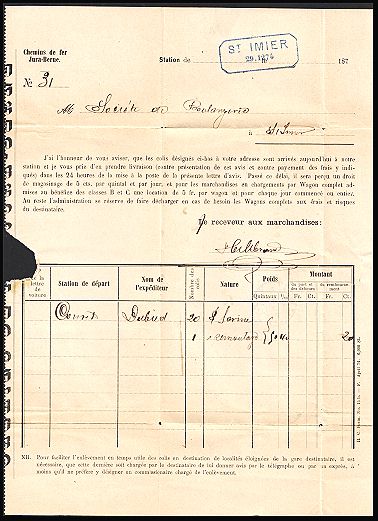 Chemins de fer
Jura-Berne.
Station de
ST IMIER
29.
187
No 31
M Société de Boulangerie
à St Imier
J'ai l'honneur de vous aviser, que les colis désignés ci-bas à votre adresse sont arrivés aujourd'hui à notre
station et je vous prie d'en prendre livraison (contre présentation de cet avis et contre payement des frais y indi-
qués) dans les 24 heures de la mise à la poste de la présente lettre d'avis. Passé ce délai, il sera perçu un droit
de magasinage de 5 cts. par quintal et par jour, et pour les marchandises en chargements par Wagon complet ad-
mises au bénéfice des classes B et C une location de 5 fr. par wagon et par jour commencé ou entier.
Au reste l'administration se réserve de faire décharger en cas de besoin les Wagons complets aux frais et risques
du destinataire.
Le receveur aux marchandises:
la
lettre
de
voiture
Station de départ
Nom de
l'expéditeur
Nombre des
colis
Nature
Poids
Quintaux
Montant
du port et
des débours
Fr. Ct.
du rembourse-
ment
Fr. Ct.
20
1
20
XII. Pour faciliter l'enlèvement en temps utile des colis en destination de localités éloignées de la gare destinataire, il est
nécessaire, que cette dernière soit chargée par le destinataire de lui donner avis par le télégraphe ou par un exprès, à
moins qu'il ne préfère y désigner un commissionaire chargé de l'enlèvement.